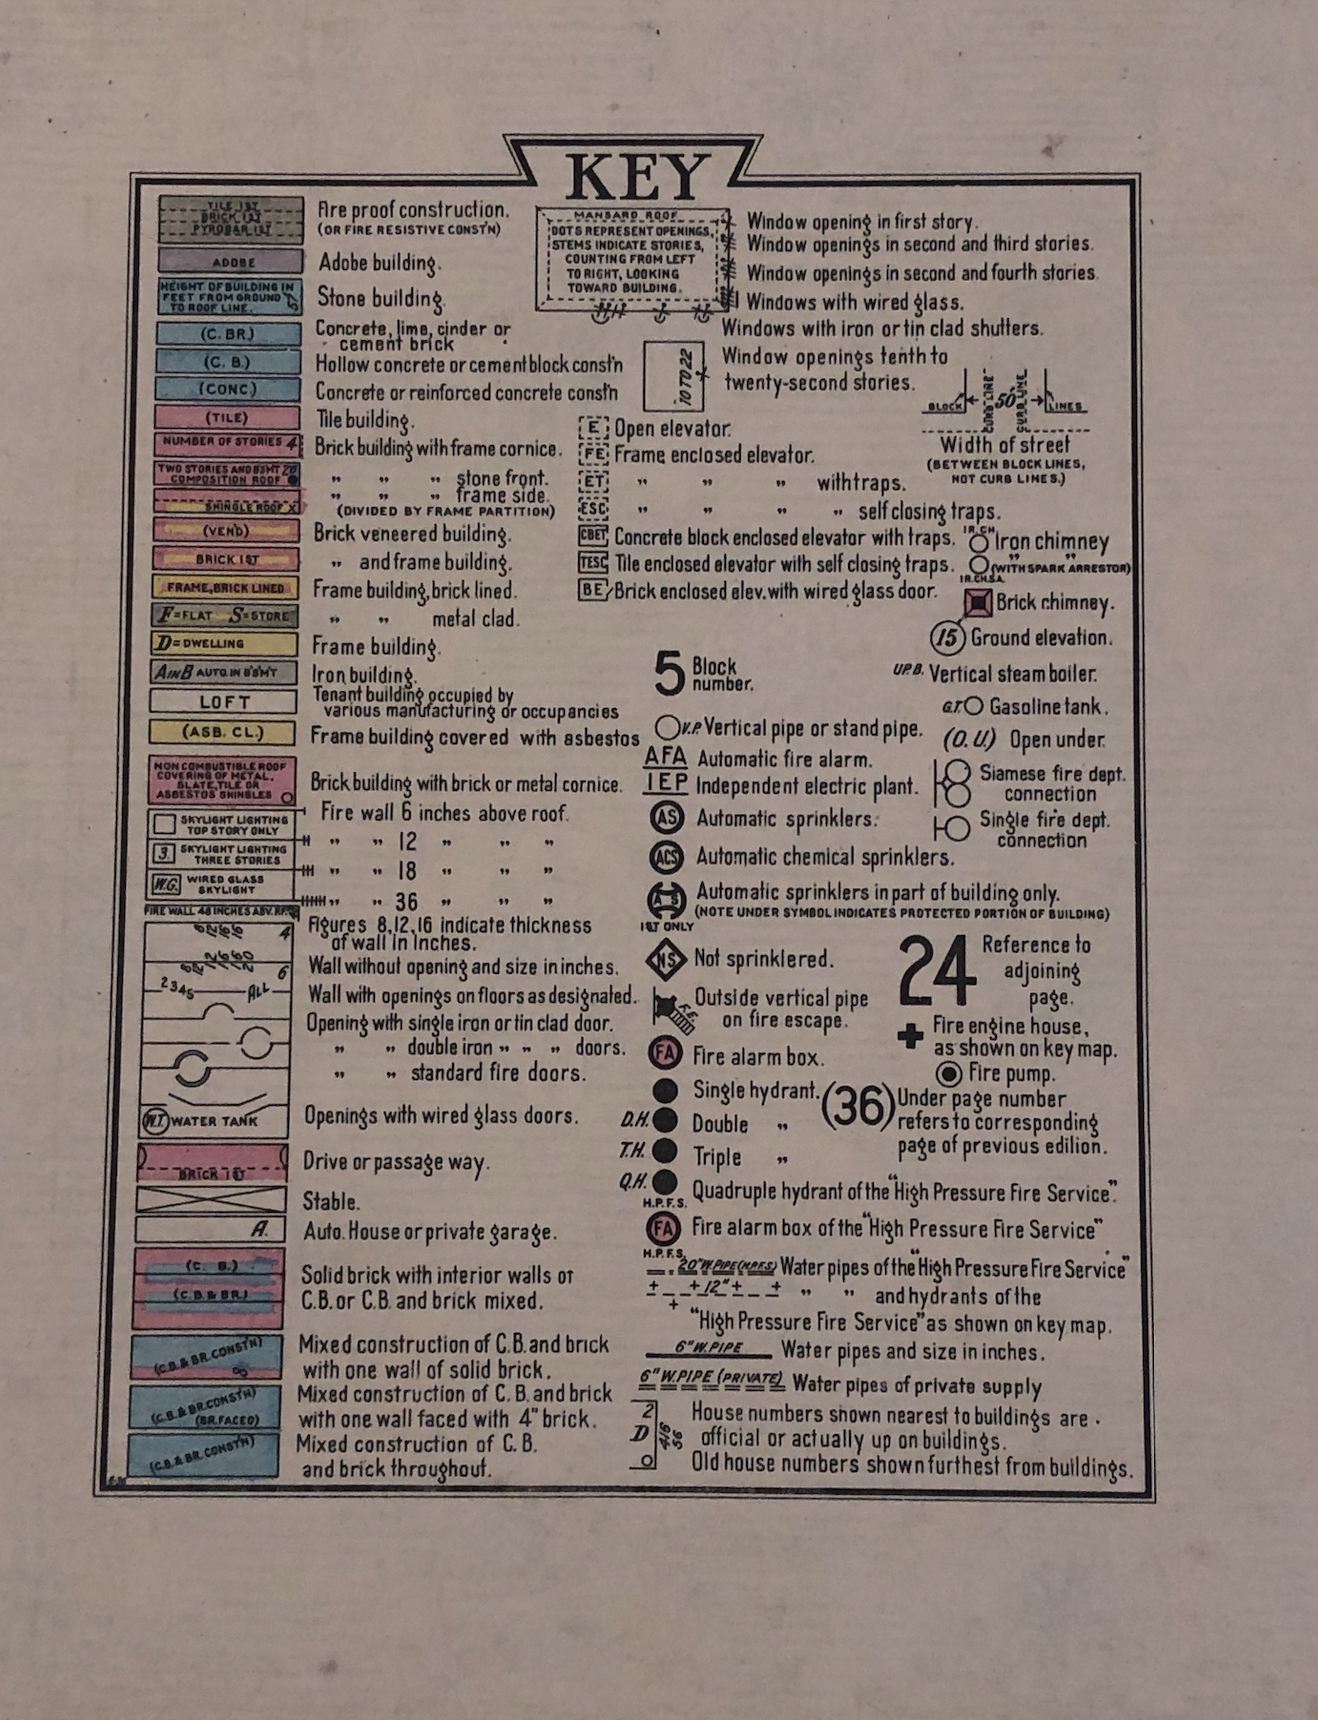 KEY
TILE 1ST
BRICK 1ST
PYROBAR 1ST
Fire proof construction.
(OR FIRE RESISTIVE CONST'N)
ADOBE
Adobe building.
HEIGHT OF BUILDING IN
FEET FROM GROUND
TO ROOF LINE.
Stone building.
(C. BR.)
Concrete, lime, cinder or
cement brick
(C. B.)
Hollow concrete or cement block const'n
(CONC.)
Concrete or reinforced concrete const'n
(TILE)
Tile building.
NUMBER OF STORIES 4
Brick building with frame cornice.
TWO STORIES AND BSMT 2B
COMPOSITION ROOF
" " " stone front.
SHINGLE ROOF X
" " " frame side.
(DIVIDED BY FRAME PARTITION)
(VEND)
Brick veneered building.
BRICK 1ST
" and frame building.
FRAME, BRICK LINED
Frame building, brick lined.
F=FLAT S=STORE
" " metal clad.
D=DWELLING
Frame building.
A IN B AUTO. IN B'SM'T
Iron building.
LOFT
Tenant building occupied by
various manufacturing or occupancies
(ASB. CL.)
Frame building covered with asbestos
NON COMBUSTIBLE ROOF
COVERING OF METAL,
SLATE, TILE OR
ASBESTOS SHINGLES
Brick building with brick or metal cornice.
SKYLIGHT LIGHTING
TOP STORY ONLY
Fire wall 6 inches above roof.
3. SKYLIGHT LIGHTING
THREE STORIES
" " 12 " " "
W.G. WIRED GLASS
SKYLIGHT
" " 18 " " "
" " 36 " " "
FIRE WALL 48 INCHES ABV. RF.
4
Figures 8, 12, 16 indicate thickness
of wall in inches.
6
Wall without opening and size in inches.
2345 ALL
Wall with openings on floors as designated.
Opening with single iron or tin clad door.
" " double iron " " " doors.
" " standard fire doors.
W.T. WATER TANK
Openings with wired glass doors.
BRICK 1ST
Drive or passage way.
Stable.
A.
Auto. House or private garage.
(C. B.)
(C.B & BR.)
Solid brick with interior walls of
C.B. or C.B. and brick mixed.
(C.B. & BR. CONST'N)
Mixed construction of C.B. and brick
with one wall of solid brick.
(C.B. & BR. CONST'N)
(BR. FACED)
Mixed construction of C.B. and brick
with one wall faced with 4" brick.
(C.B. & BR. CONST'N)
Mixed construction of C.B.
and brick throughout.
MANSARD ROOF
DOTS REPRESENT OPENINGS,
STEMS INDICATE STORIES,
COUNTING FROM LEFT
TO RIGHT, LOOKING
TOWARD BUILDING.
Window opening in first story.
Window openings in second and third stories.
Window openings in second and fourth stories.
Windows with wired glass.
Windows with iron or tin clad shutters.
10 TO 22
Window openings tenth to
twenty-second stories.
BLOCK 50' LINES
CURB LINE
CURB LINE
Width of street
(BETWEEN BLOCK LINES,
NOT CURB LINES.)
E Open elevator.
FE Frame enclosed elevator.
ET " " " with traps.
ESC " " " " self closing traps.
CBET Concrete block enclosed elevator with traps.
TESC Tile enclosed elevator with self closing traps.
BE Brick enclosed elev. with wired glass door.
IR. CH. Iron chimney
IR. CH. S.A. " " (WITH SPARK ARRESTOR)
Brick chimney.
15 Ground elevation.
5 Block
number.
UP.B. Vertical steam boiler.
G.T. Gasoline tank.
V.P. Vertical pipe or stand pipe.
(O. U.) Open under.
AFA Automatic fire alarm.
IEP Independent electric plant.
Siamese fire dept.
connection
AS Automatic sprinklers.
Single fire dept.
connection
ACS Automatic chemical sprinklers.
AS
1ST ONLY
Automatic sprinklers in part of building only.
(NOTE UNDER SYMBOL INDICATES PROTECTED PORTION OF BUILDING)
NS Not sprinklered.
24 Reference to
adjoining
page.
F.E. Outside vertical pipe
on fire escape.
Fire engine house,
as shown on key map.
FA Fire alarm box.
Fire pump.
Single hydrant.
D.H. Double "
T.H. Triple "
(36) Under page number
refers to corresponding
page of previous edition.
Q.H.
H.P.F.S.
Quadruple hydrant of the "High Pressure Fire Service".
FA
H.P.F.S.
Fire alarm box of the "High Pressure Fire Service"
20" W.PIPE (H.P.F.S.) Water pipes of the "High Pressure Fire Service"
12" " " and hydrants of the
"High Pressure Fire Service" as shown on key map.
6" W.PIPE Water pipes and size in inches.
6" W.PIPE (PRIVATE) Water pipes of private supply
2
D
O
House numbers shown nearest to buildings are
official or actually up on buildings.
Old house numbers shown furthest from buildings.